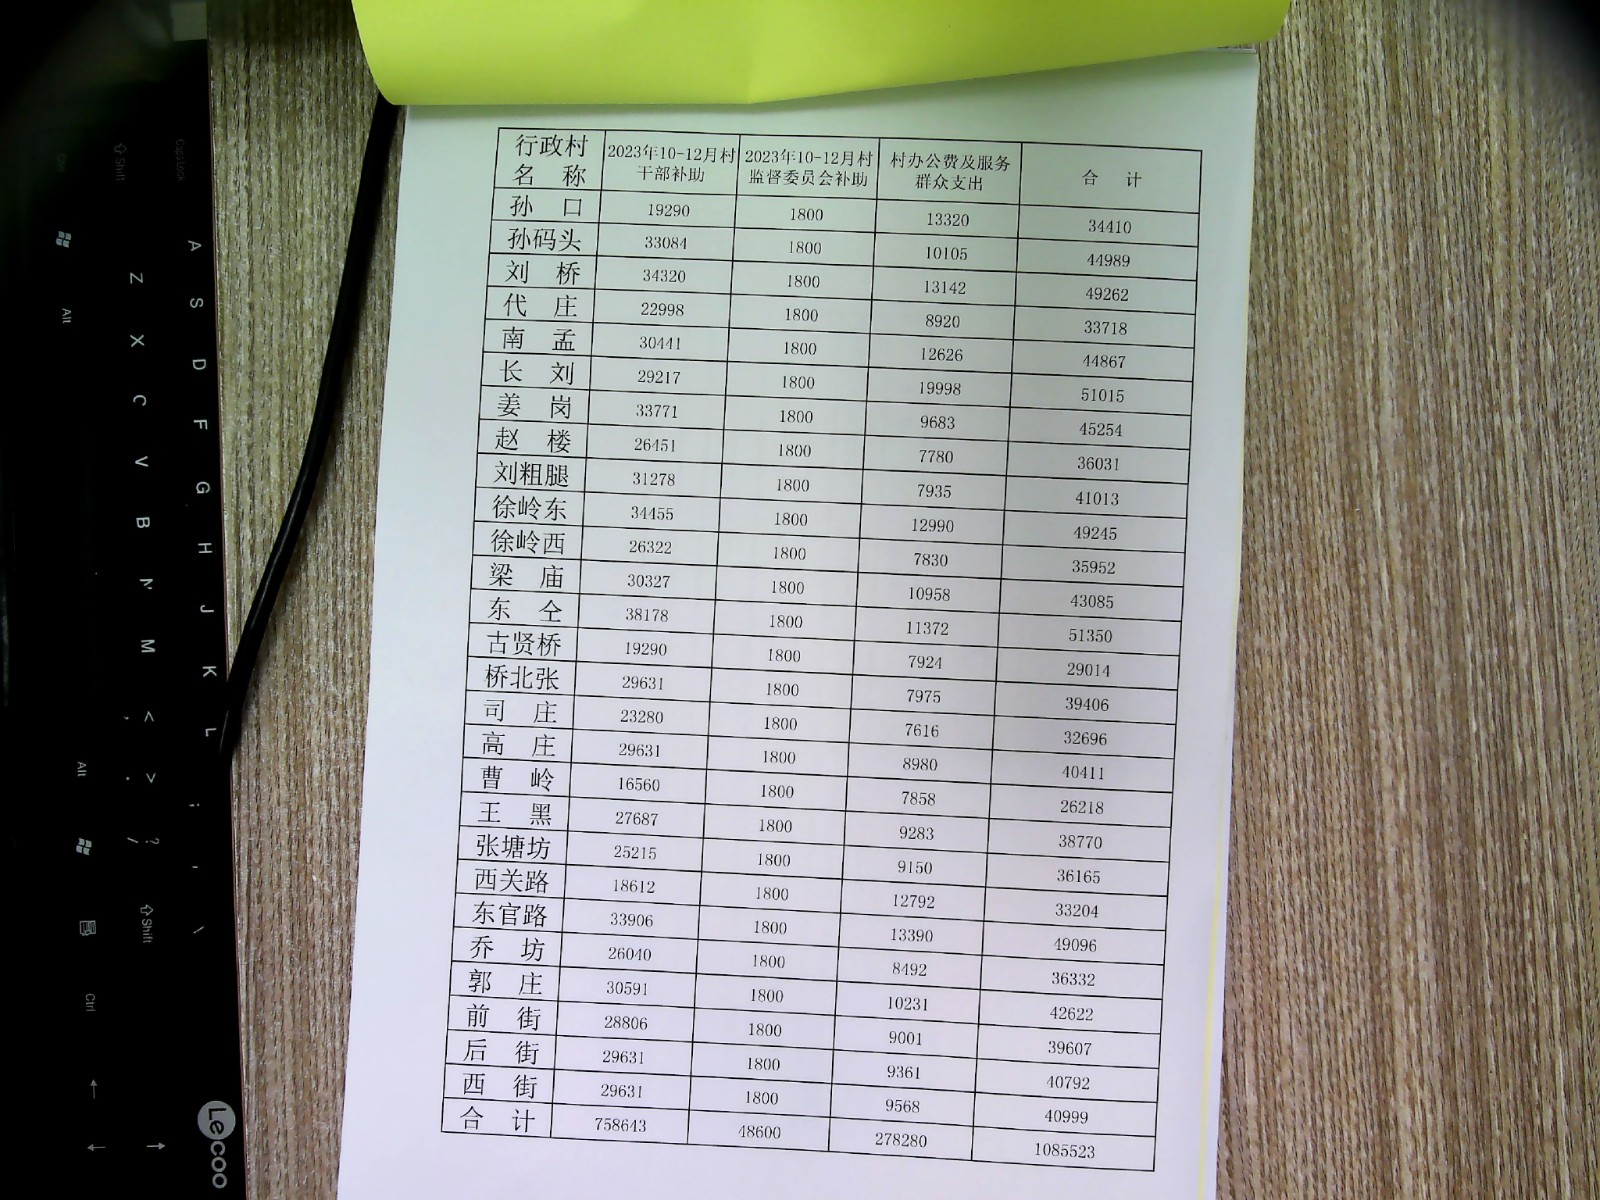 行政村名 称 2023年10-12月村干部补助 2023年10-12月村监督委员会补助 村办公费及服务群众支出 合 计
孙 口 19290 1800 13320 34410
孙码头 33084 1800 10105 44989
刘 桥 34320 1800 13142 49262
代 庄 22998 1800 8920 33718
南 孟 30441 1800 12626 44867
长 刘 29217 1800 19998 51015
姜 岗 33771 1800 9683 45254
赵 楼 26451 1800 7780 36031
刘粗腿 31278 1800 7935 41013
徐岭东 34455 1800 12990 49245
徐岭西 26322 1800 7830 35952
梁 庙 30327 1800 10958 43085
东 仝 38178 1800 11372 51350
古贤桥 19290 1800 7924 29014
桥北张 29631 1800 7975 39406
司 庄 23280 1800 7616 32696
高 庄 29631 1800 8980 40411
曹 岭 16560 1800 7858 26218
王 黑 27687 1800 9283 38770
张塘坊 25215 1800 9150 36165
西关路 18612 1800 12792 33204
东官路 33906 1800 13390 49096
乔 坊 26040 1800 8492 36332
郭 庄 30591 1800 10231 42622
前 街 28806 1800 9001 39607
后 街 29631 1800 9361 40792
西 街 29631 1800 9568 40999
合 计 758643 48600 278280 1085523
CapsLock A S D F G H J K L ;
Shift Z X C V B N M < , > . ? / Shift
Alt Alt Ctrl
Lecoo